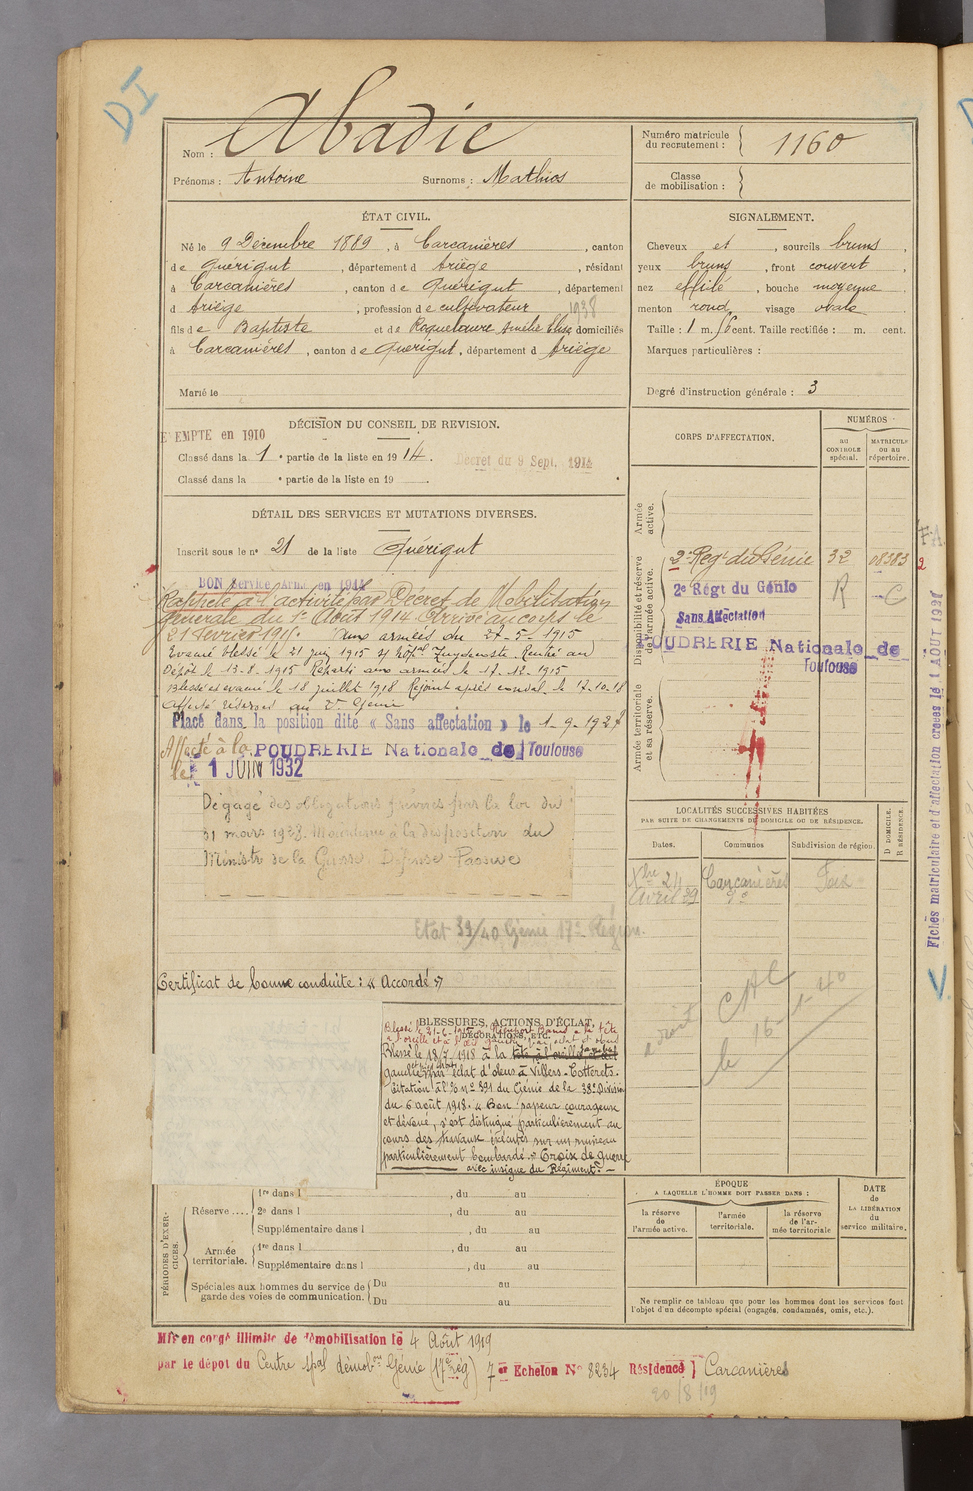 DI
Nom : Abadie
Prénoms : Antoine Surnoms : Mathios
Numéro matricule
du recrutement : 1160
Classe
de mobilisation :
ÉTAT CIVIL.
Né le 9 Décembre 1889, à Carcanières, canton
de Quérigut, département d Ariège, résidant
à Carcanières, canton de Quérigut, département
d Ariège, profession de cultivateur 1938
fils de Baptiste et de Roquelaure Amélie Elise domiciliés
à Carcanières, canton de Quérigut, département d Ariège
Marié le
SIGNALEMENT.
Cheveux et, sourcils bruns,
yeux bruns, front couvert,
nez effilé, bouche moyenne,
menton rond, visage ovale
Taille : 1 m. cent. Taille rectifiée : m. cent.
Marques particulières :
Degré d'instruction générale : 3
DÉCISION DU CONSEIL DE REVISION.
EXEMPTE en 1910
Classé dans la 1e partie de la liste en 1914. Décret du 9 Sept. 1914
Classé dans la e partie de la liste en 19 .
DÉTAIL DES SERVICES ET MUTATIONS DIVERSES.
Inscrit sous le no 21 de la liste Quérigut
BON Service Armé en 1914
Rappelé à l'activité par Décret de Mobilisation
générale du 1er Août 1914 Arrivé au corps le
21 février 1915. aux armées du 27-5-1915
Evacué blessé le 21 juin 1915 Rentré au
Dépôt le 13-8-1915 Réparti aux armées le 17-12-1915
Blessé et évacué le 18 juillet 1918 Rejoint après conval. le 17-10-18
Affecté réserves au 2e Génie
Placé dans la position dite « Sans affectation » le 1-9-1927
Affecté à la POUDRERIE Nationale de Toulouse
le 1 JUIN 1932
Dégagé des obligations prévues par la loi du
31 mars 1928. Maintenu à la disposition du
Ministre de la Guerre Défense Passive
Etat 39/40 Génie 17e Région.
Certificat de bonne conduite : « Accordé »
CORPS D'AFFECTATION.
NUMÉROS
au
CONTROLE
spécial.
MATRICULE
ou au
répertoire.
Armée
active.
Disponibilité et réserve
de l'armée active.
Armée territoriale
et sa réserve.
2e Régt du Génie 32 08383 2
2e Régt du Génio R C
Sans Affectation
POUDRERIE Nationale de
Toulouse
LOCALITÉS SUCCESSIVES HABITÉES
PAR SUITE DE CHANGEMENTS DE DOMICILE OU DE RÉSIDENCE.
Dates. Communes Subdivision de région.
D DOMICILE.
R RÉSIDENCE.
Xbre 24 Carcanières Foix
Avril 39 do
CAC
le 16-1-40
Fiches matriculaire et d'affectation créées le 1 AOUT 192
BLESSURES, ACTIONS D'ÉCLAT,
DÉCORATIONS, ETC.
Blessé le 18/7/1918 à la
gauche par éclat d'obus à Villers-Cotterets.
Citation à l'O no 391 du Génie de la 38e Division
du 6 août 1918. « Bon sapeur courageux
et dévoué, s'est distingué particulièrement au
cours des travaux exécutés sur un ruisseau
particulièrement bombardé » Croix de guerre
avec insigne du Régiment.
PÉRIODES D'EXERCICES.
Réserve ....
1re dans l , du au
2e dans l , du au
Supplémentaire dans l , du au
Armée
territoriale.
1re dans l , du au
Supplémentaire dans l , du au
Spéciales aux hommes du service de
garde des voies de communication.
Du au
Du au
ÉPOQUE
A LAQUELLE L'HOMME DOIT PASSER DANS :
la réserve
de
l'armée active.
l'armée
territoriale.
la réserve
de l'ar-
mée territoriale
DATE
de
LA LIBÉRATION
du
service militaire.
Ne remplir ce tableau que pour les hommes dont les services font
l'objet d'un décompte spécial (engagés, condamnés, omis, etc.).
Mis en congé illimité de démobilisation le 4 Août 1919
par le dépot du Centre démob. Génie (17e Rég) 7e Echelon No 8234 Résidence Carcanières
20/8/19